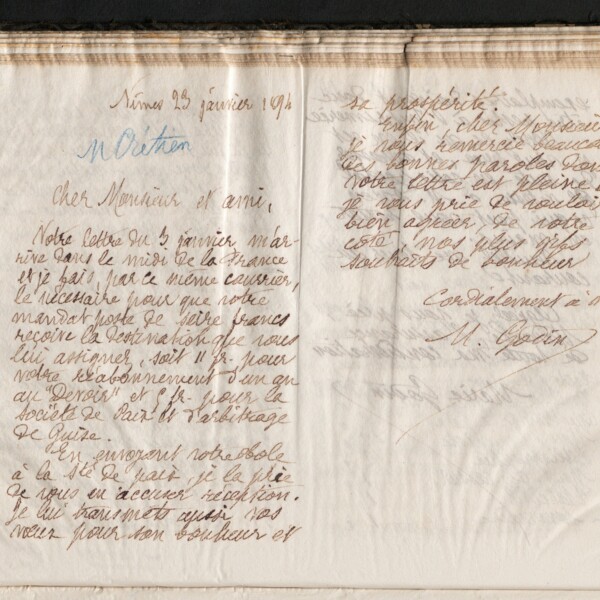 Nîmes 23 janvier 1894
Cher Monsieur et ami,
Votre lettre du 3 janvier m'ar-
rive dans le midi de la France
et je fais, par ce même courrier,
le nécessaire pour que votre
mandat poste de seize francs
reçoive la destination que vous
lui assignez, soit 11 fr. pour
votre réabonnement d'un an
au "Devoir" et 5 fr. pour la
société de Paix et d'arbitrage
de Guise.
En envoyant votre obole
à la Sté de paix, je la prie
de vous en accuser réception.
Je lui transmets aussi vos
vœux pour son bonheur et
sa prospérité.
Enfin, cher Monsieur
je vous remercie beaucou
des bonnes paroles dont
votre lettre est pleine
je vous prie de vouloi
bien agréer, de notre
côté, nos plus vifs
souhaits de bonheur
Cordialement à
M. Godin